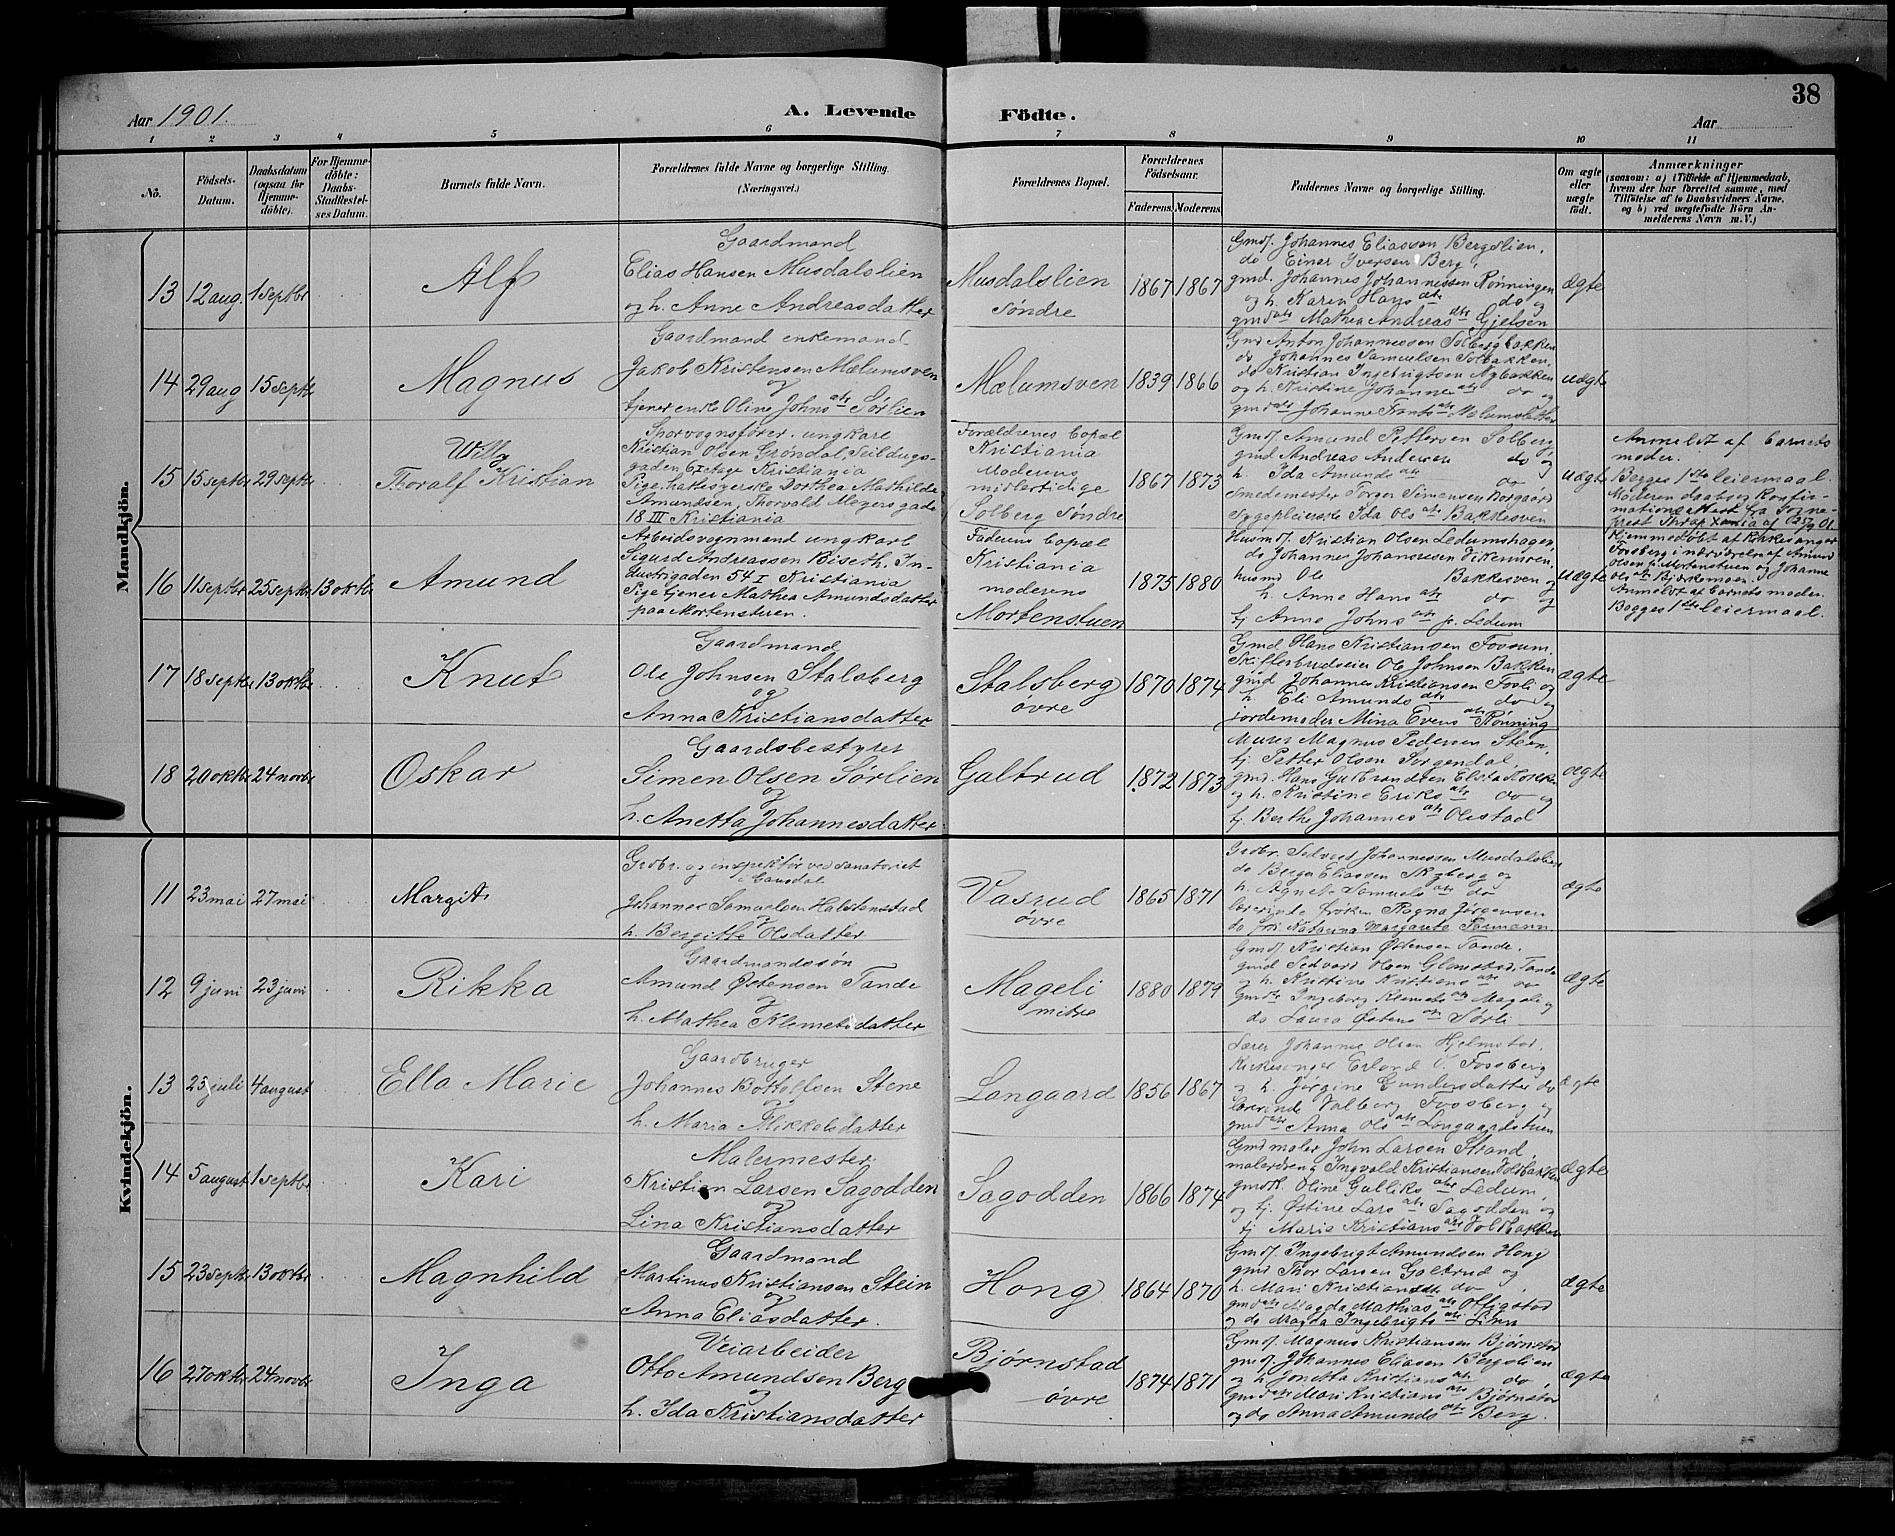 38
Aar 1901.
A. Levende Födte.
Aar
1 2 3 4 5 6 7 8 9 10 11
No.
Födsels-Datum.
Daabsdatum (ogsaa for Hjemme-döbte).
For Hjemme-döbte: Daabs-Stadfestel-ses Datum.
Barnets fulde Navn.
Forældrenes fulde Navne og borgerlige Stilling.
(Næringsvei.)
Forældrenes Bopæl.
Forældrenes Födselsaar.
Faderens. Moderens.
Faddernes Navne og borgerlige Stilling.
Om ægte eller uægte født.
Anmærkninger
(saasom: a) i Tilfælde af Hjemmedaab,
hvem der har forrettet samme, med
Tilföielse af to Daabsvidners Navne,
og b) ved uægtefödte Börn An-
melderens Navn m. V.)
Mandkjön.
13 12 aug 1 septbr
Alf
Gaardmand
Elias Hansen Musdalslien
og h. Anne Andreasdatter
Musdalslien
søndre
1867 1867
Gmdf. Johannes Eliassen Bergslien,
do Einer Iversen Berg,
gmd. Johannes Johannessen Rønningen
og h. Karen Hans dtr do og
gmd dtr Mathea Andreas dtr Gjelsen
ægte
14 29 aug 15 septbr
Magnus
Gaardmand enkemand
Jakob Kristensen Mælumsven
og
tjener enke Oline Johns dtr Sørlien
Mælumsven
1839 1866
Gmd Anton Johannessen Solbergbakken
do Johannes Samuelsen Solbakken,
do Kristian Ingebrigtsen Nybakken
og h. Kristine Johanne dtr do og
uægte
15 15 septbr 29 septbr
Willy
Thoralf Kristian
Sporvognsfører, ungkarl
Kristian Olsen Grøndal, Seildugs-
gaden 6 I Aage Kristiania
Pige, hattesyerske Dorthea Mathilde
Amundsen, Thorvald Meyers gade
18 III Kristiania
Forældrenes bopæl
Kristiania
Moderens
midlertidige
Solberg Søndre
1867 1873
Gmdf. Amund Pettersen Solberg,
gmd Andreas Andersen do og
h. Ida Amunds dtr do
Smedemester Torger Simensen Borgaard
Sygepleierske Ida Ols dtr Bakkesven
uægte
Anmeldt af barnets
moder.
Begges 1ste leiermaal.
Moderen daabs og konfir-
mations attest fra sogne-
16 11 septbr 25 septbr 13 oktbr
Amund
Arbeidsvognmand ungkarl
Sigurd Andreassen Biseth, In-
dustrigaden 54 I Kristiania
Pige tjener Mathea Amundsdatter
paa Mortenstuen.
Faderens bopæl
Kristiania
moderens
Mortenstuen
1875 1880
Husmf. Kristian Olsen Ledumshagen,
do Johannes Johannessen Vikemoen,
husmd Ole Bakkesven og
h. Anne Hans dtr do og
tj Anne Johns dtr p. Ledum
uægte
Hjemmedøbt af kirkesanger
Fossberg i nærværelse af Amund
Olsen p. Mortenstuen og Johanne
Ols dtr Bjerkemoen.
Anmeldt af barnets moder.
Begges 1ste leiermaal.
17 18 septbr 13 oktbr
Knut
Gaardmand
Ole Johnsen Stalsberg
og
Anna Kristiansdatter
Stalsberg
øvre
1870 1874
Gmd Hans Kristiansen Fossum,
Skiferbrudseier Ole Johnsen Bakken
gmd Johannes Kristiansen Fosli og
h. Eli Amunds dtr do og
jordemoder Mina Evens dtr Rønning
ægte
18 20 oktbr 24 novbr
Oskar
Gaardsbestyrer
Simen Olsen Sørlien
og
h. Anetta Johannesdatter
Galtrud
1872 1873
Murer Magnus Pedersen Steen,
tj. Petter Olsen Sorgendal,
gmd. Hans Gulbrandsen
og h. Kristine Eriks dtr do og
tj. Berthe Johannes dtr Olestad
ægte
Kvindekjön.
11 23 mai 27 mai
Margit
Grdbr. og inspektør ved sanatoriet
i Gausdal
Johannes Samuelsen Halstenstad
h. Bergitte Olsdatter
Vasrud
øvre
1865 1871
Grdbr. Sedvard Johannessen Musdalslien
do Berger Eliassen Skyberg og
h. Agnete Samuels dtr do
lærerinde frøken Ragna Jørgensen
do frk Katarina Margarete
ægte
12 9 juni 23 juni
Rikka
Gaardmandssøn
Amund Østensen Tande
og
h. Mathea Klemetsdatter
Mageli
mitre
1880 1879
Gmdf Kristian Østensen Tande.
gmd Sedvard Olsen Glomstad, Tande
og h. Kristine Kristians dtr do
Gmd dtr Ingeborg Klemets dtr Mageli og
do Laura Østens dtr Sørli
ægte
13 25 juli 4 august
Ella Marie
Gaardbruger
Johannes Bottolfsen Stene
og
h. Maria Mikkelsdatter
Langaard
1856 1867
Lærer Johannes Olsen Hjelmstad,
Kirkesanger Erland O. Fossberg
og h. Jørgine Gundersdatter do
lærerinde Valborg Fossberg og
gmd dtr Anna Ols dtr Langaardstuen
ægte
14 5 august 1 septbr
Kari
Malermester
Kristian Larsen Sagodden
og
Lina Kristiansdatter
Sagodden
1866 1874
Gmd maler John Larsen Strand,
malerdreng Ingvald Kristiansen Voldbakken
gmdk. Oline Gulliks dtr Ledum,
og tj. Østine Lars dtr Sagodden og
tj Marie Kristians dtr Voldbakken
ægte
15 23 septbr 13 oktbr
Magnhild
Gaardmand
Martinus Kristiansen Stein
og
Anna Eliasdatter.
Hong
1864 1870
Gmdf. Ingebrigt Amundsen Hong
gmd Thor Larsen Galtrud og
h. Mari Kristians dtr do,
gmd dtr Magda Mathias dtr Offigstad
og do Magda Ingebrigts dtr Lien
ægte
16 27 oktbr 24 novbr
Inga
Veiarbeider
Otto Amundsen Berg
og
h. Ida Kristiansdatter
Bjørnstad
øvre
1874 1871
Gmdf. Magnus Kristiansen Bjørnstad
gmdf. Johannes Eliasen Bergslien
og h. Jonetta Kristians dtr do,
Gmd dtr Mari Kristians dtr Bjørnstad
og do Anna Amunds dtr Berg.
ægte